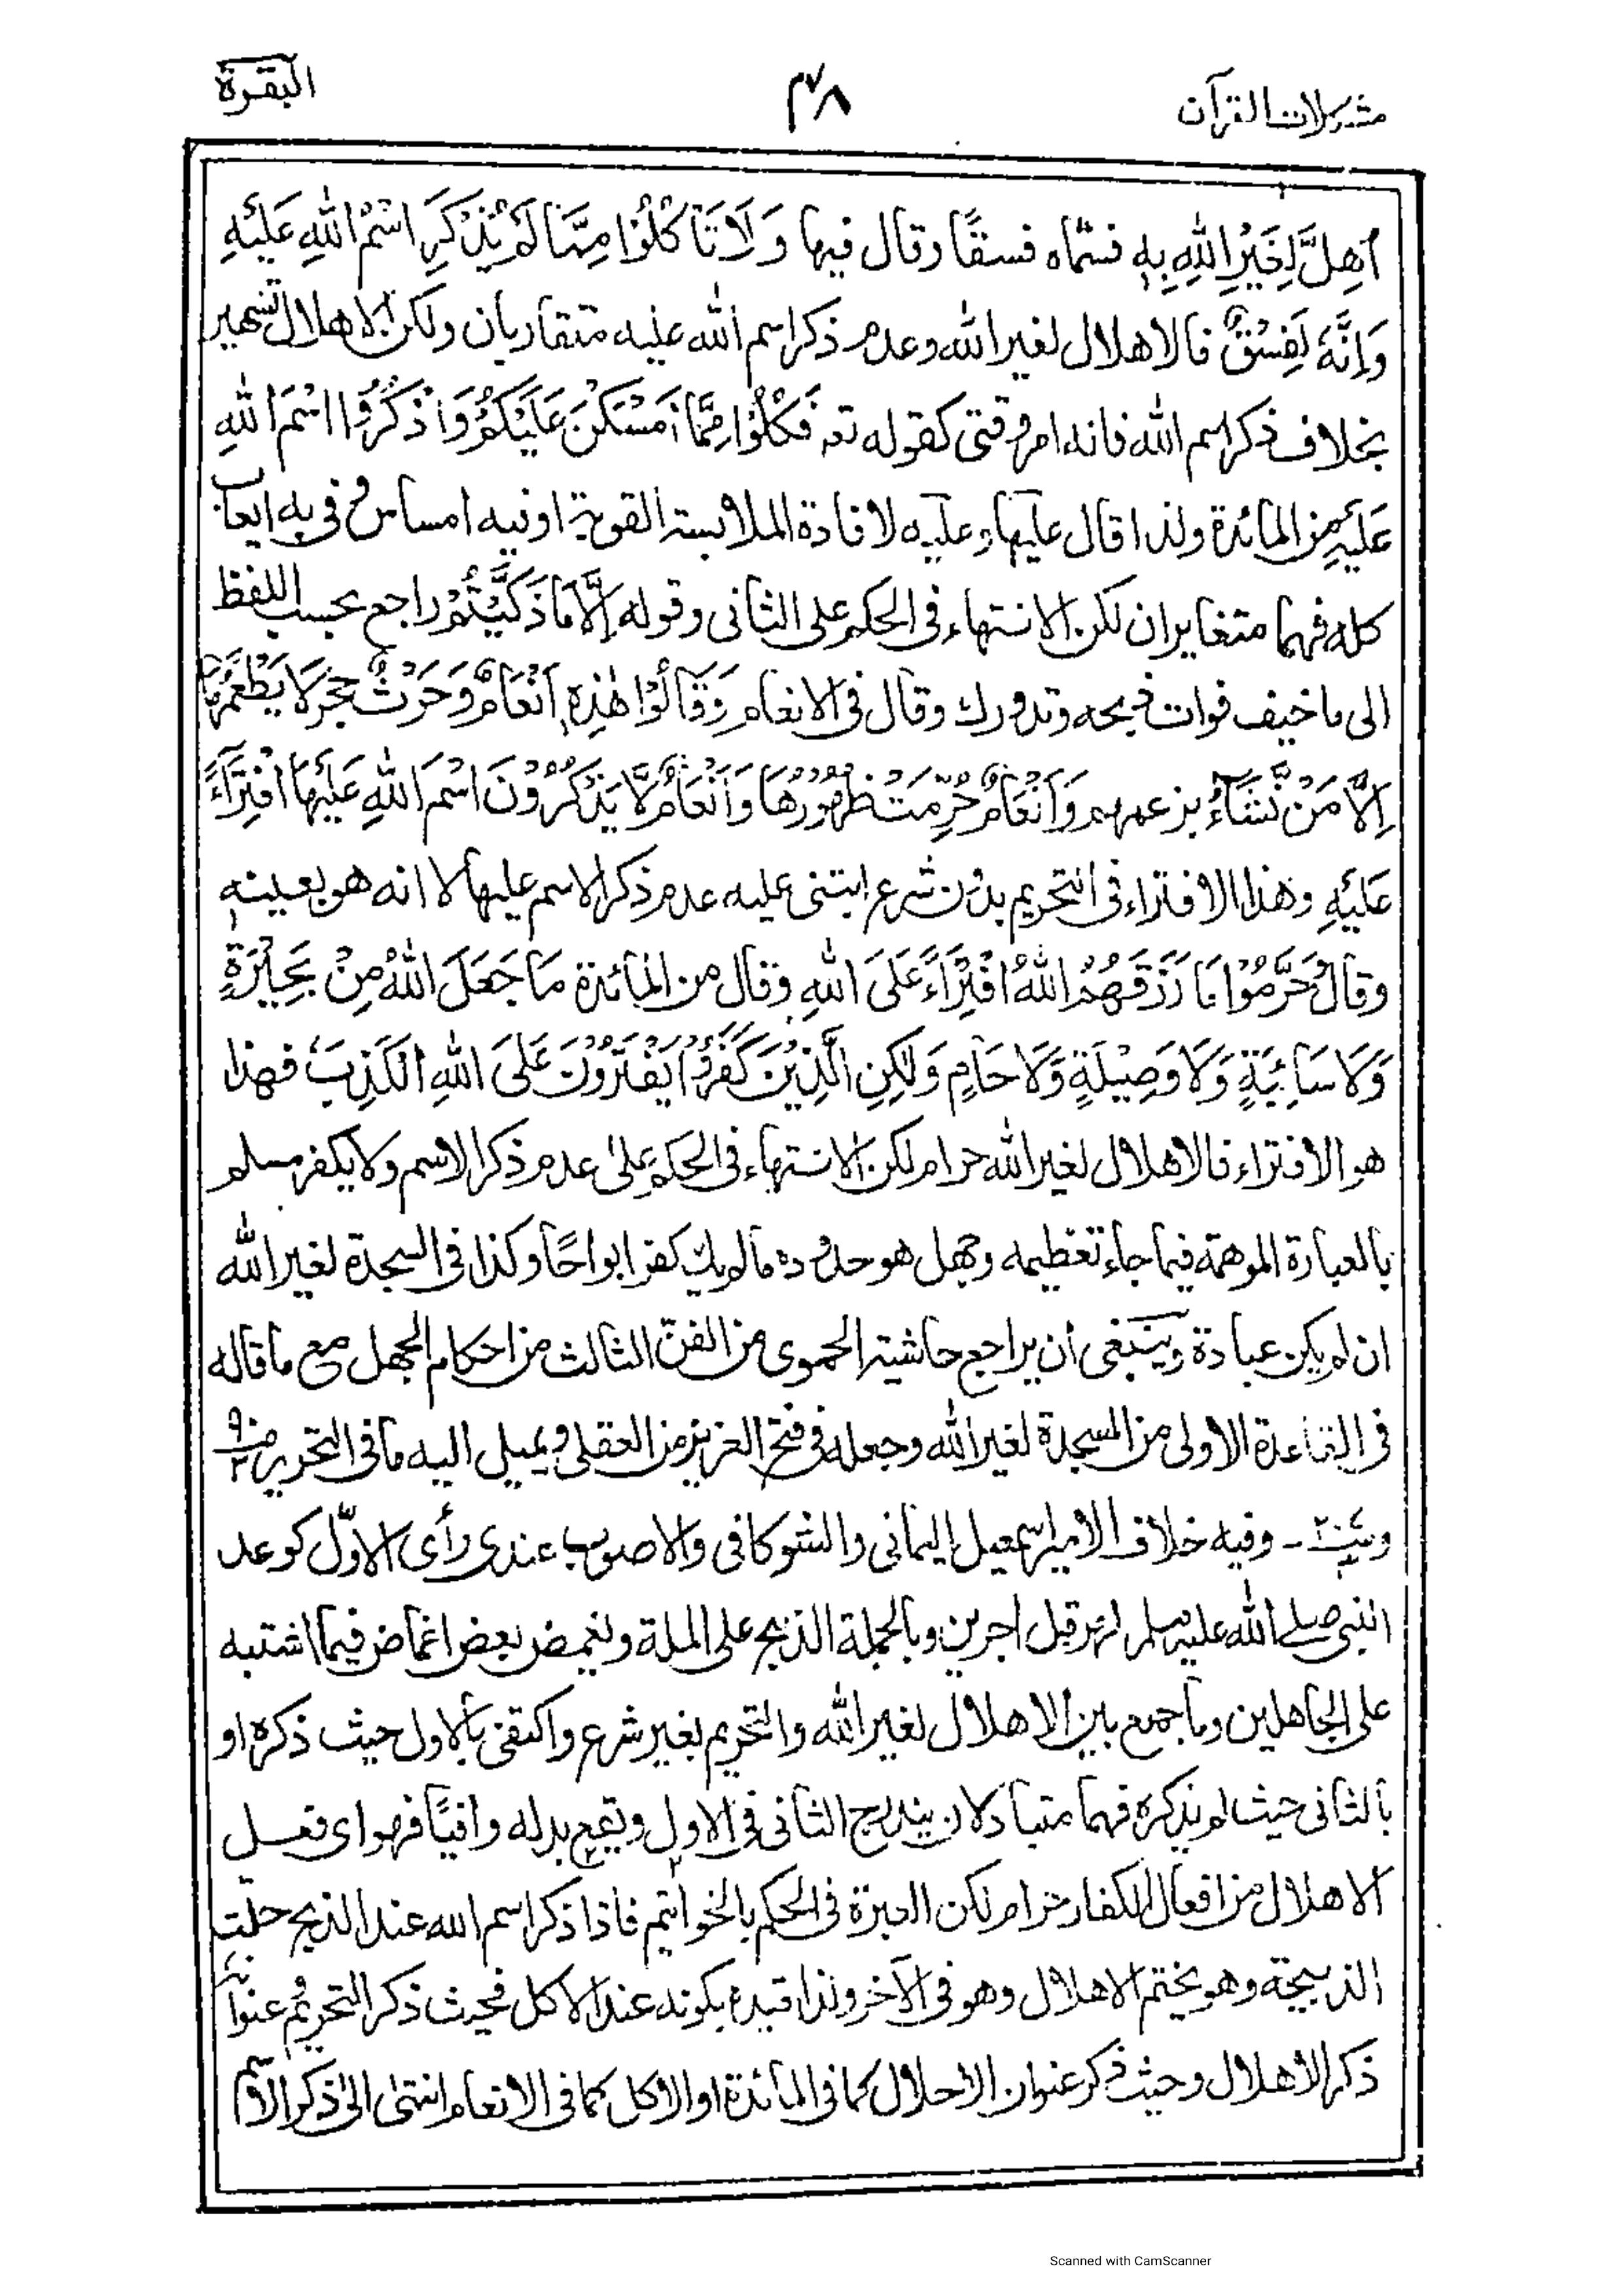 مشكلات القرآن ٣٨ البقرة
اُهِلَّ لِغَيْرِ اللهِ بِهِ فسمّاه فسقًا وقال فيها وَلَا تَأْكُلُوْا مِمَّا لَمْ يُذْكَرِ اسْمُ اللهِ عَلَيْهِ
وَاِنَّهٗ لَفِسْقٌ فالاهلال لغير الله وعدم ذكر اسم الله عليه متقاربان ولكن الاهلال تشهير
بخلاف ذكر اسم الله فانه امر وقتى كقوله تعہ فَكُلُوْا مِمَّا اَمْسَكْنَ عَلَيْكُمْ وَاذْكُرُوا اسْمَ اللهِ
عَلَيْهِ من المائدة ولذا قال عليها وعليه لافادة الملابسة القوية او فيه امساس وفى به ايعاب
كله فهما متغايران لكن الانتهاء فى الحكم على الثانى وقوله اِلَّا مَا ذَكَّيْتُمْ راجع بحسب اللفظ
الى ما خيف فوات ذبحه وتدورك وقال فى الانعام وَقَالُوْا هٰذِهٖ اَنْعَامٌ وَحَرْثٌ حِجْرٌ لَا يَطْعَمُهَا
اِلَّا مَنْ نَّشَآءُ بزعمهم وَاَنْعَامٌ حُرِّمَتْ ظُهُوْرُهَا وَاَنْعَامٌ لَّا يَذْكُرُوْنَ اسْمَ اللهِ عَلَيْهَا افْتِرَآءً
عَلَيْهِ وهذا الافتراء فى التحريم بدون شرع ابتنى عليه عدم ذكر الاسم عليها لا انه هو بعينه
وقال وَحَرَّمُوْا مَا رَزَقَهُمُ اللهُ افْتِرَآءً عَلَى اللهِ وقال من المائدة مَا جَعَلَ اللهُ مِنْ بَحِيْرَةٍ
وَّلَا سَآئِبَةٍ وَّلَا وَصِيْلَةٍ وَّلَا حَامٍ وَلٰكِنَّ الَّذِيْنَ كَفَرُوْا يَفْتَرُوْنَ عَلَى اللهِ الْكَذِبَ فهذا
هو الافتراء فالاهلال لغير الله حرام لكن الانتهاء فى الحكم على عدم ذكر الاسم ولا يكفر مسلم
بالعبارة الموهمة فيما جاء تعظيمه وجهل هو حدوده مالم يك كفرا بواحًا وكذا فى السجدة لغير الله
ان لم يكن عبادة وينبغى أن يراجع حاشية الحموى من الفنّ الثالث من احكام الجهل مع ما قاله
فى القاعدة الاولى من السجدة لغير الله وجعله فى فتح العزيز من العقلى ويميل اليه ما فى التحرير ص ٩/٢
وفيه خلاف الامير اسمعيل اليمانى والشوكانى والاصوب عندى رأى الاوّل كوعد
النبى صلى الله عليه وسلم لهرقل اجرين وبالجملة الذبح على الملة ونغمض بعض اغماض فيما اشتبه
على الجاهلين وما جمع بين الاهلال لغير الله والتحريم بغير شرع واكتفى بالاول حيث ذكره او
بالثانى حيث لم يذكره فهما متبادلان يندرج الثانى فى الاول ويقع بدله وافيًا فهو اى فعل
الاهلال من افعال الكفار حرام لكن العبرة فى الحكم بالخواتيم فاذا ذكر اسم الله عند الذبح حلّت
الذبيحة وهو يختم الاهلال وهو فى الآخر ولذا قيده بكونه عند الاكل فحيث ذكر التحريم عنوانا
ذكر الاهلال وحيث ذكر عنوان الاحلال كما فى المائدة او الاكل كما فى الانعام انتهى الى ذكر الاسم
Scanned with CamScanner